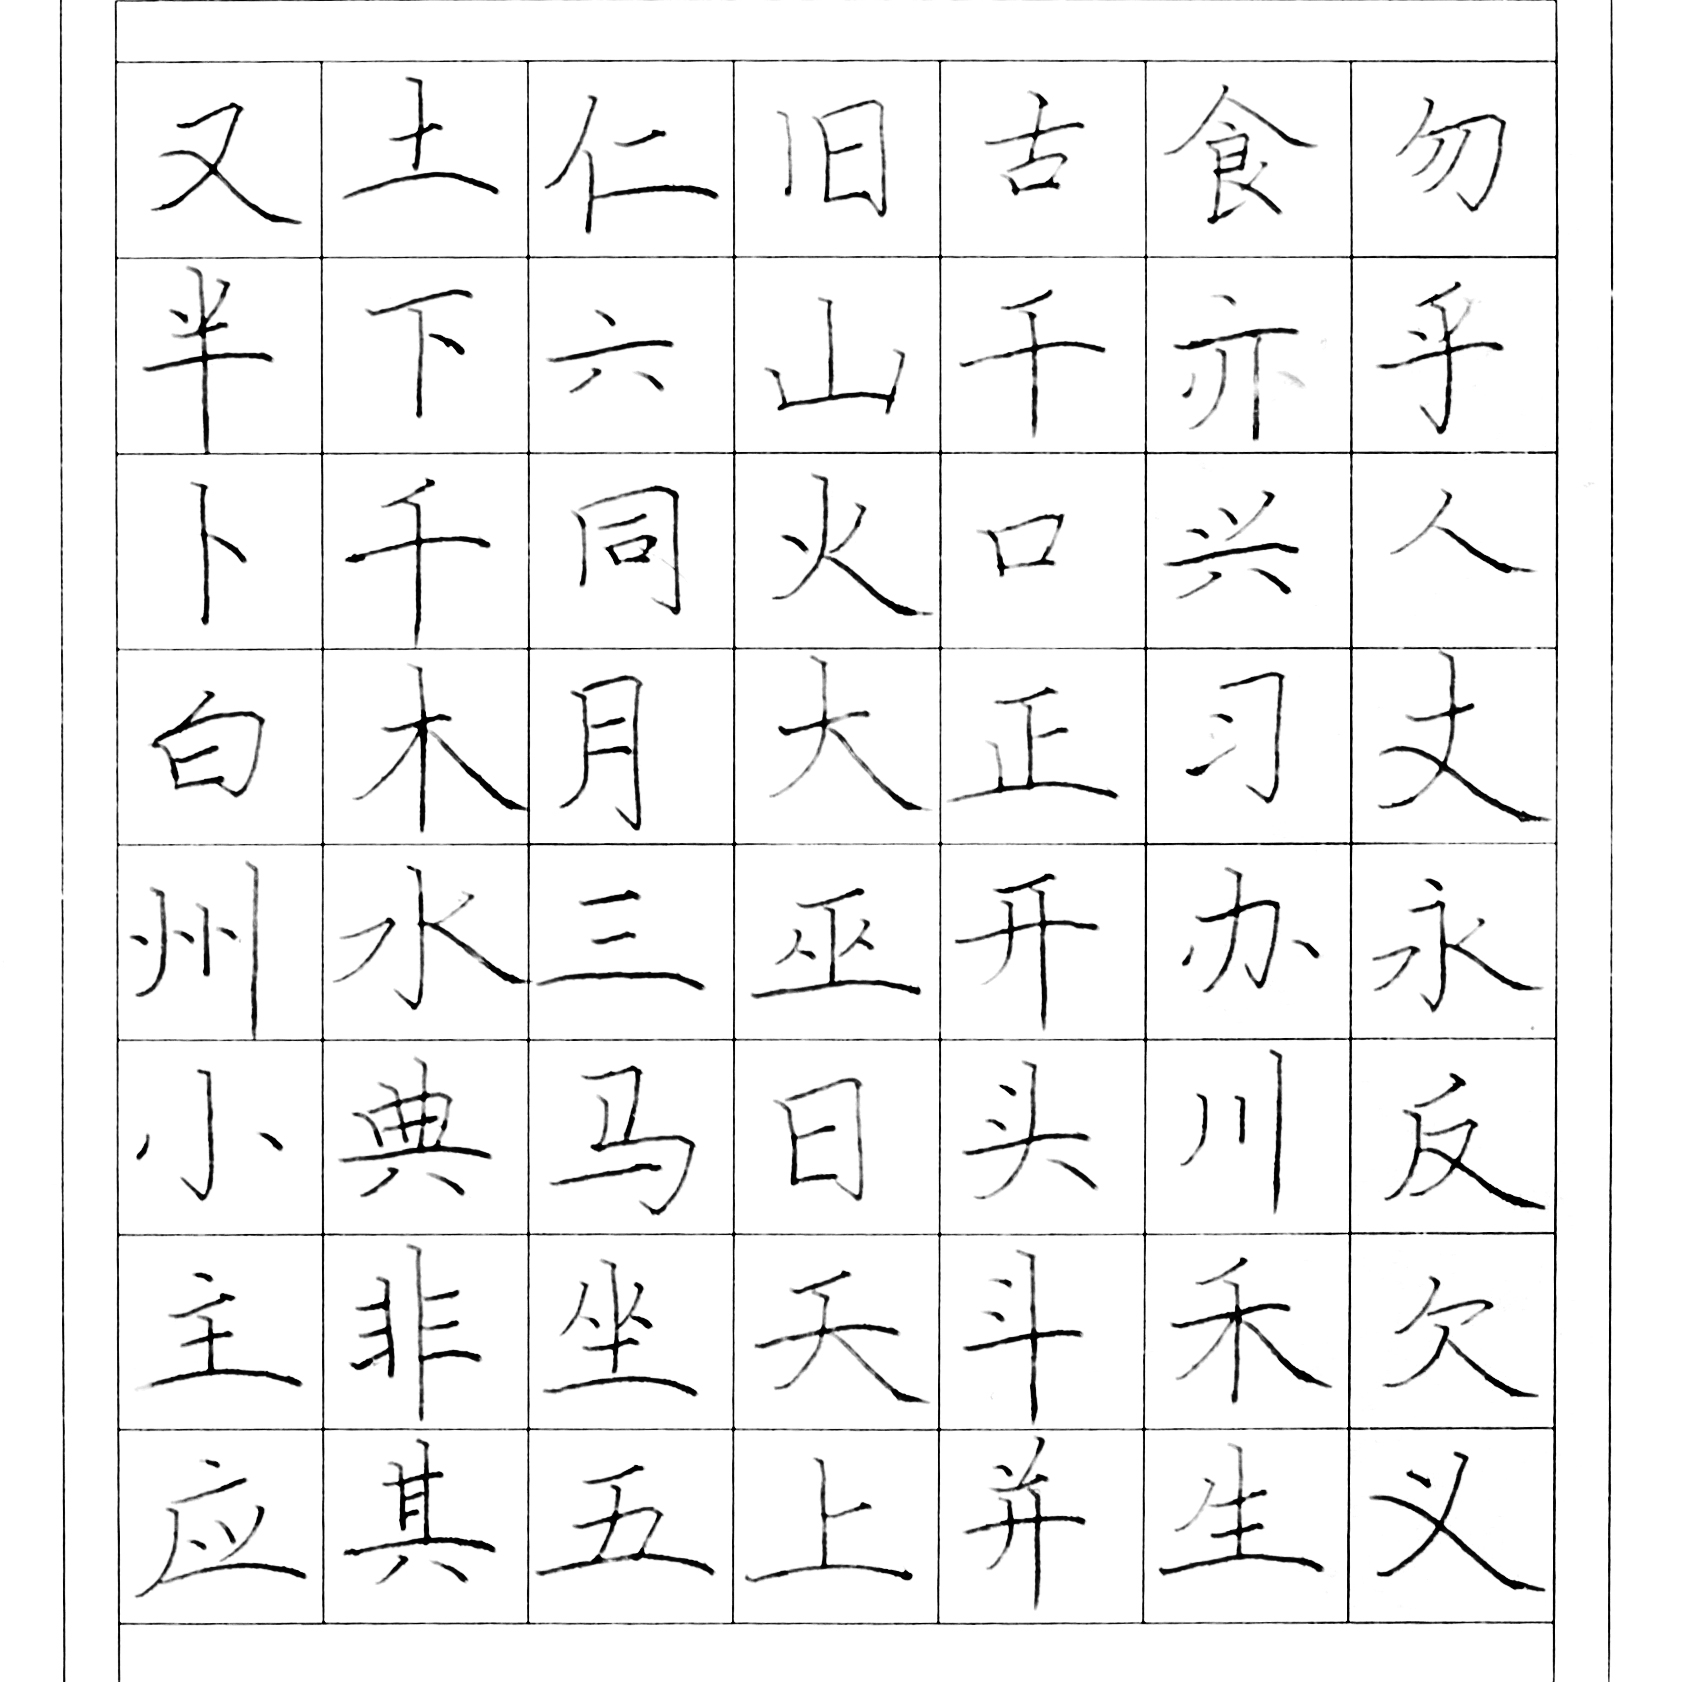 又土仁旧古食勿
半下六山干亦乎
卜千同火口兴人
白木月大正习丈
州水三巫开办永
小典马日头川反
主非坐天斗禾欠
应其五上并生义